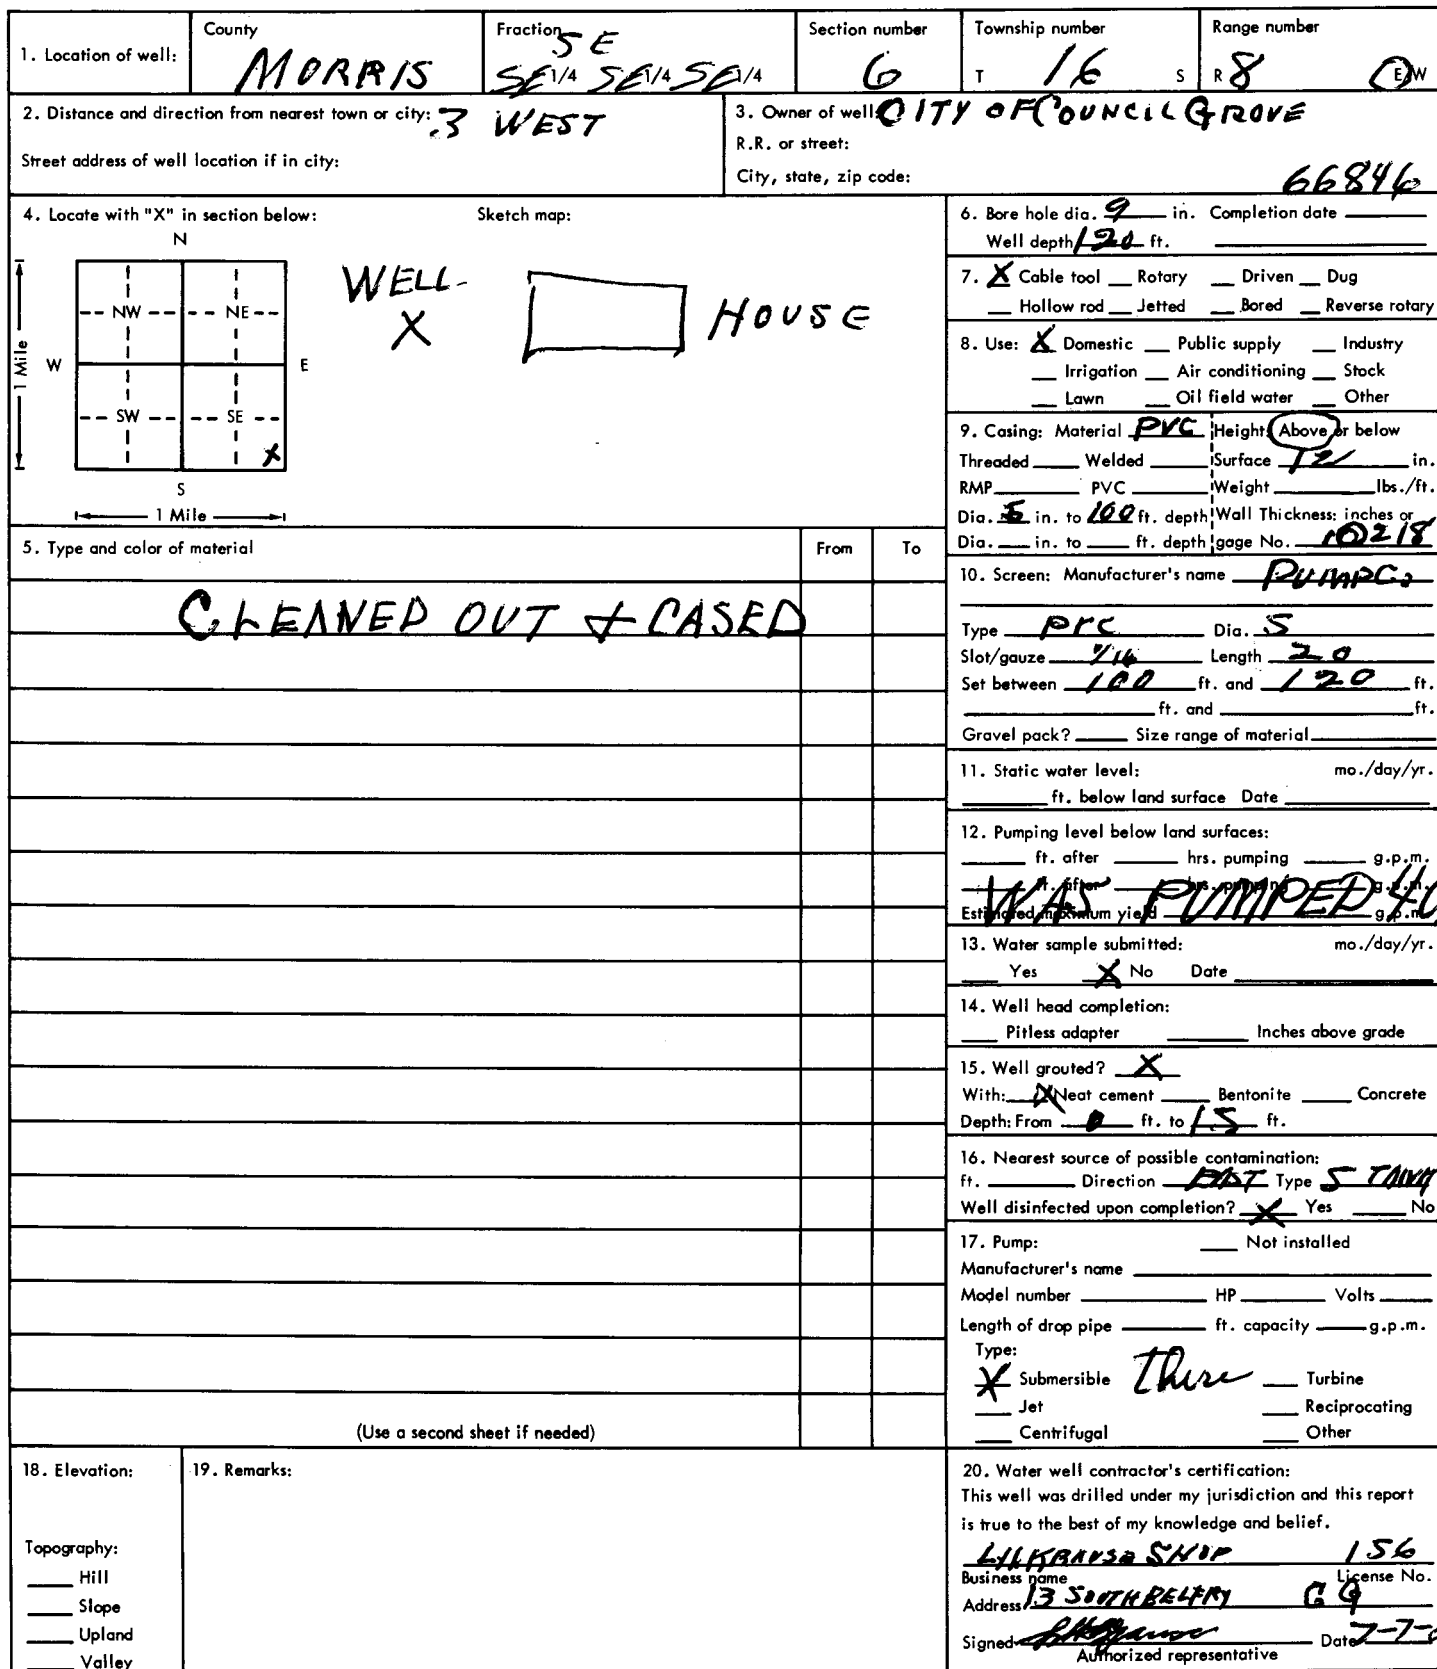 1. Location of well:
County
MORRIS
Fraction
SE
SE 1/4 SE 1/4 SE 1/4
Section number
6
Township number
T 16 S
Range number
R 8 E/W
2. Distance and direction from nearest town or city: 3 WEST
Street address of well location if in city:
3. Owner of well: CITY OF COUNCIL GROVE
R.R. or street:
City, state, zip code:
66846
4. Locate with "X" in section below:
Sketch map:
N
NW NE
W E
SW SE
X
S
1 Mile
1 Mile
WELL-
X
HOUSE
5. Type and color of material From To
CLEANED OUT & CASED
(Use a second sheet if needed)
6. Bore hole dia. 9 in. Completion date
Well depth 120 ft.
7. X Cable tool Rotary Driven Dug
Hollow rod Jetted Bored Reverse rotary
8. Use: X Domestic Public supply Industry
Irrigation Air conditioning Stock
Lawn Oil field water Other
9. Casing: Material PVC Height: Above or below
Threaded Welded Surface 12 in.
RMP PVC Weight lbs./ft.
Dia. 5 in. to 100 ft. depth Wall Thickness: inches or
Dia. in. to ft. depth gage No.
10. Screen: Manufacturer's name PUMP Co
Type PVC Dia. 5
Slot/gauze 1/16 Length 20
Set between 100 ft. and 120 ft.
ft. and ft.
Gravel pack? Size range of material
11. Static water level: mo./day/yr.
ft. below land surface Date
12. Pumping level below land surfaces:
ft. after hrs. pumping g.p.m.
ft. after hrs. pumping g.p.m.
WAS PUMPED 40
Estimated maximum yield g.p.m.
13. Water sample submitted: mo./day/yr.
Yes X No Date
14. Well head completion:
Pitless adapter Inches above grade
15. Well grouted? X
With: X Neat cement Bentonite Concrete
Depth: From 0 ft. to 15 ft.
16. Nearest source of possible contamination:
ft. Direction EAST Type S TANK
Well disinfected upon completion? X Yes No
17. Pump: Not installed
Manufacturer's name
Model number HP Volts
Length of drop pipe ft. capacity g.p.m.
Type:
X Submersible There Turbine
Jet Reciprocating
Centrifugal Other
18. Elevation:
Topography:
Hill
Slope
Upland
Valley
19. Remarks:
20. Water well contractor's certification:
This well was drilled under my jurisdiction and this report
is true to the best of my knowledge and belief.
SHOP 156
Business name License No.
Address 13 SOUTH BELFRY C G
Signed Date 7-7-
Authorized representative